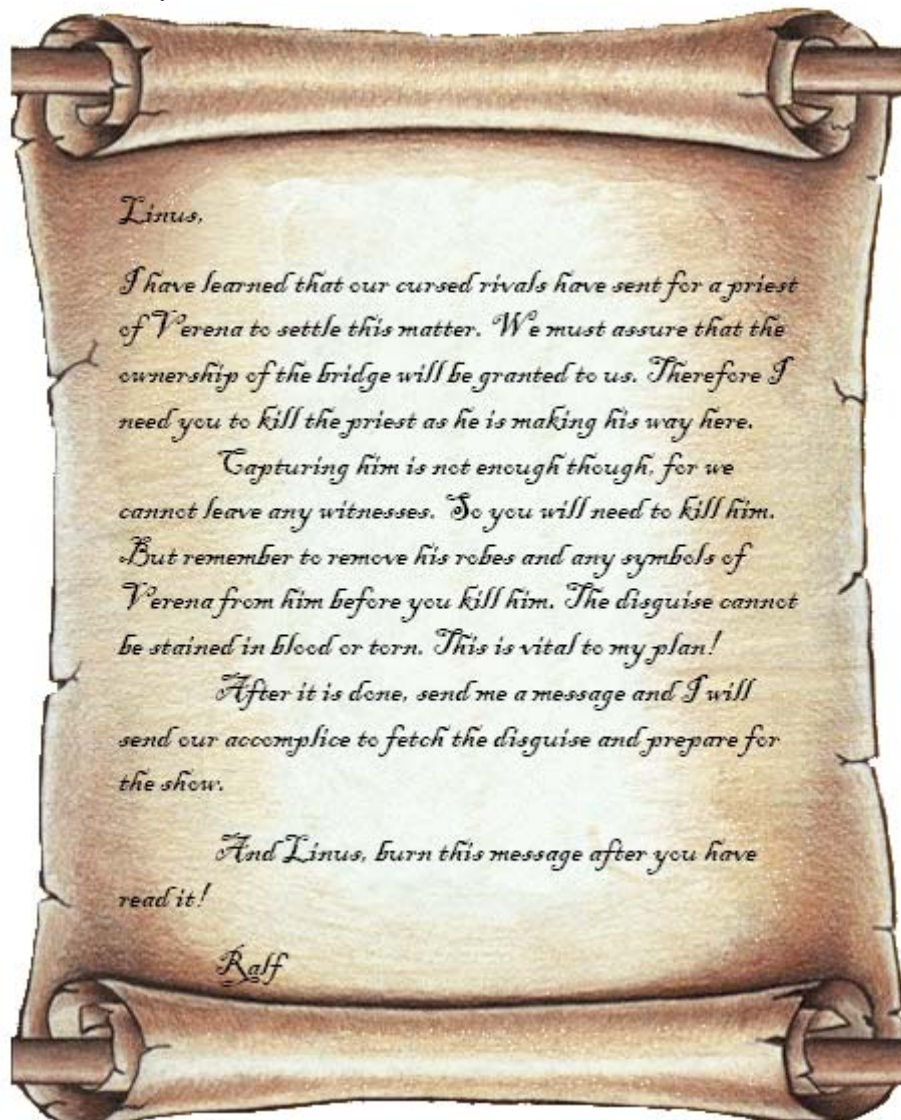 Linus,
I have learned that our cursed rivals have sent for a priest
of Verena to settle this matter. We must assure that the
ownership of the bridge will be granted to us. Therefore I
need you to kill the priest as he is making his way here.
Capturing him is not enough though, for we
cannot leave any witnesses. So you will need to kill him.
But remember to remove his robes and any symbols of
Verena from him before you kill him. The disguise cannot
be stained in blood or torn. This is vital to my plan!
After it is done, send me a message and I will
send our accomplice to fetch the disguise and prepare for
the show.
And Linus, burn this message after you have
read it!
Ralf